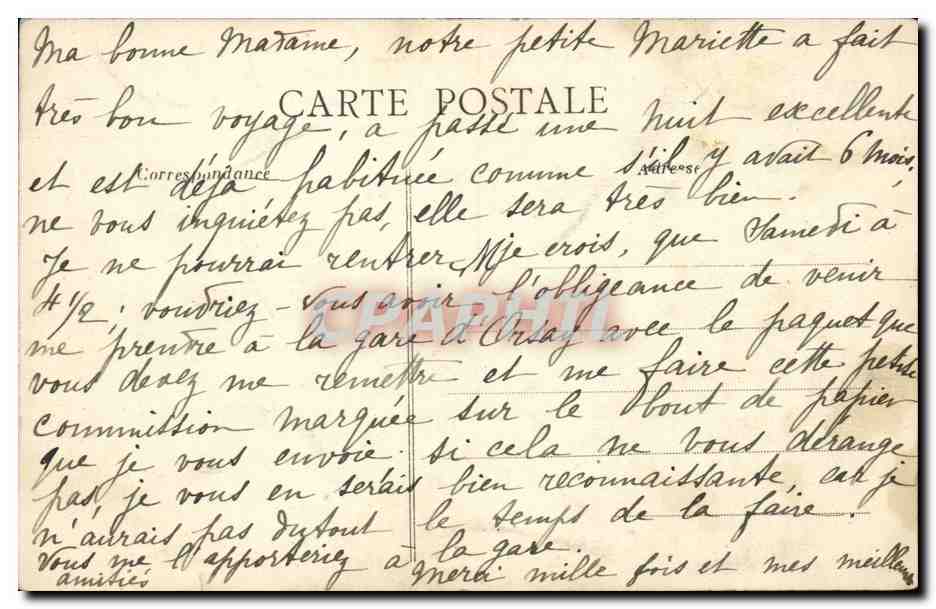 Ma bonne Madame, notre petite Mariette a fait
CARTE POSTALE
très bon voyage, a passé une nuit excellente
Correspondance
Adresse
et est déjà habituée comme s'il y avait 6 mois,
ne vous inquiétez pas, elle sera très bien.
Je ne pourrai rentrer, je crois, que Samedi à
4 1/2; voudriez-vous avoir l'obligeance de venir
CPAPHIL
me prendre à la gare d'Orsay avec le paquet que
vous devez me remettre et me faire cette petite
commission marquée sur le bout de papier
que je vous envoie. si cela ne vous dérange
pas, je vous en serais bien reconnaissante, car je
n'aurais pas du tout le temps de la faire.
Vous me l'apporteriez à la gare.
Merci mille fois et mes meilleures
amitiés